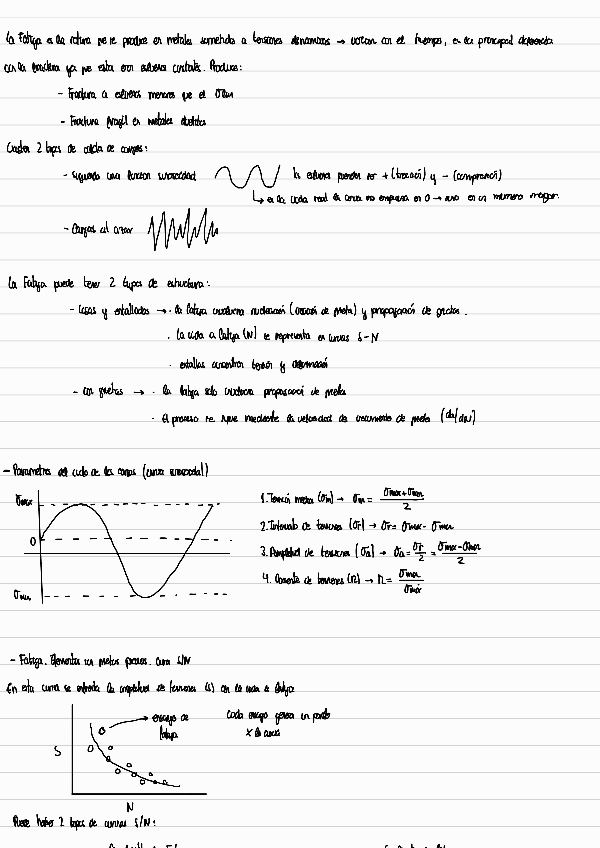 La Fatiga es la rotura que se produce en metales sometidos a tensiones dinámicas → varian con el tiempo, es la principal diferencia
con la fractura ya que esta eran esfuerzos constantes. Produce:
- Fractura a esfuerzos menores que el
- Fractura fragil en metales dúctiles
2 tipos de de cargas:
- Siguiendo una funcion sinusoidal los esfuerzos pueden ser + (tracción) y - (compresión)
↳ en la vida real la curva no empieza en 0 → sino en un número mayor.
- Cargas al azar
La Fatiga puede tener 2 tipos de estructura:
- Lisas y entalladas → · la fatiga involucra nucleación ( de grieta) y propagación de grietas.
· La vida a fatiga (N) se representa en curvas S-N
· entallas concentran tensión y deformación
- con grietas → · la fatiga solo involucra propagación de grieta
· El proceso se sigue mediante la velocidad de crecimiento de grieta (da/dN)
- Parámetros del ciclo de las cargas (curva sinusoidal)
σmax
0
σmin
1. Tensión media (σm) → σm = σmax+σmin / 2
2. Intervalo de tensiones (σr) → σr = σmax - σmin
3. Amplitud de tensiones (σa) → σa = σr/2 = σmax-σmin / 2
4. Cociente de tensiones (R) → R = σmin / σmáx
- Fatiga. Elementos sin grietas previas. Curva S/N
En esta curva se enfrenta la amplitud de tensiones (S) con la vida a fatiga
ensayo de
fatiga
Cada ensayo genera un punto
x la curva
S
N
Puede haber 2 tipos de curvas S/N: